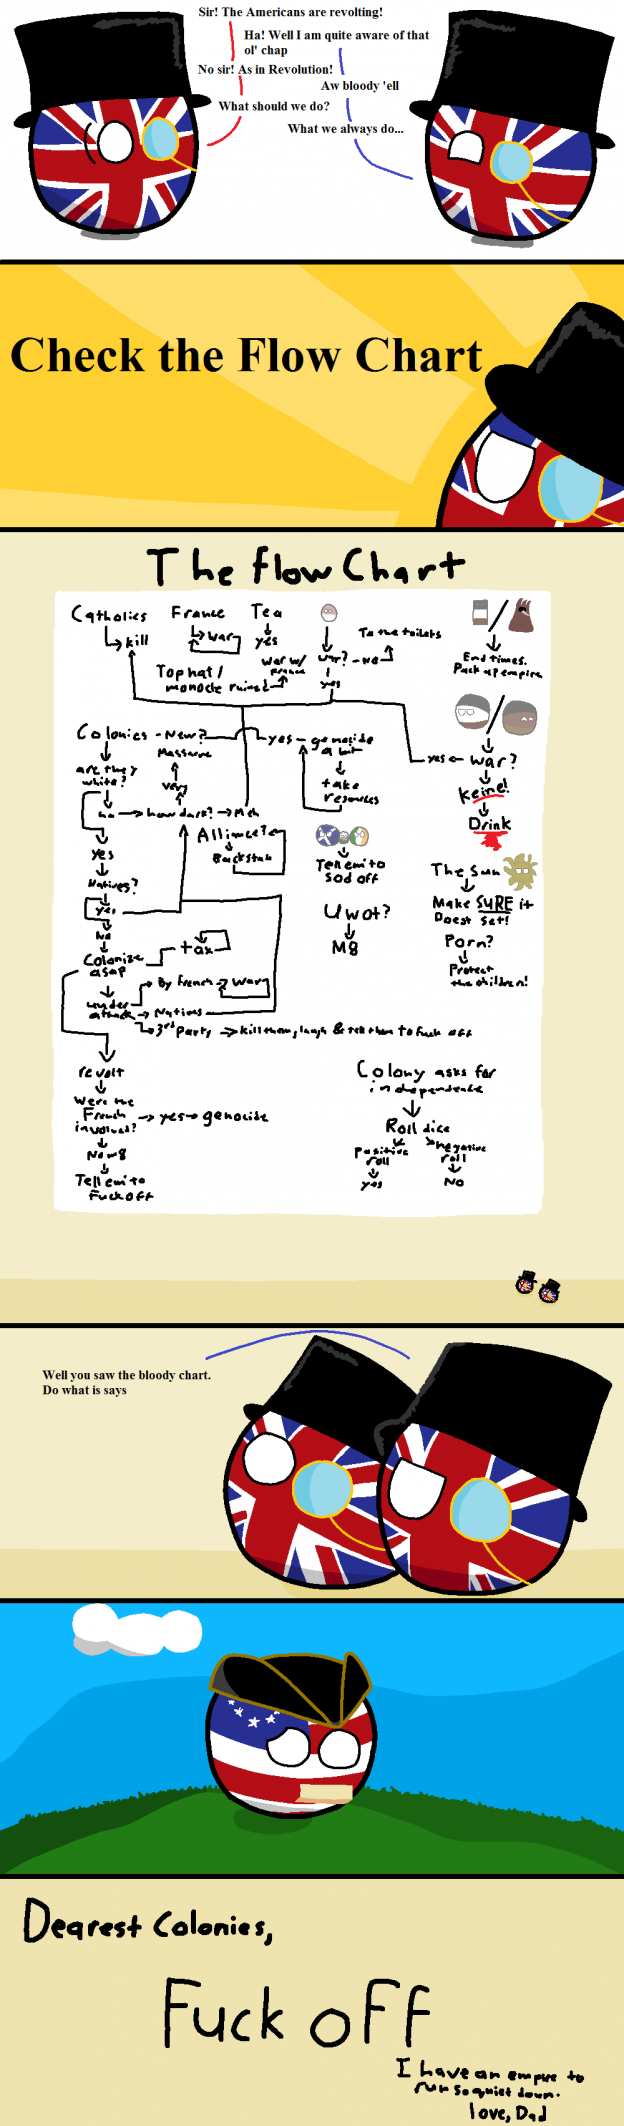 Sir! The Americans are revolting!
Ha! Well I am quite aware of that
ol' chap
No sir! As in Revolution!
Aw bloody 'ell
What should we do?
What we always do...
Check the Flow Chart
The Flow Chart
Catholics
kill
France
war
Tea
yes
war?
yes
- No
To the toilets
End times.
Pack up empire
Top hat /
monocle ruined
war w/
France
Colonies - New?
yes - genocide
a bit
take
resources
Massacre
very
are they
white?
no
how dark?
Meh
yes
Natives?
yes
No
Colonize
asap
tax
under
attack
By French
war
Natives
3rd Party
kill them, laugh & tell them to fuck off
Alliance?
Backstab
Tell em to
sod off
U wot?
M8
yes
war?
Keine!
Drink
The Sun
Make SURE it
Doesnt set!
Porn?
Protect
the children!
revolt
Were the
French
involved?
yes
genocide
No m8
Tell em to
Fuck off
Colony asks for
independence
Roll dice
Positive
roll
yes
negative
roll
No
Well you saw the bloody chart.
Do what is says
Dearest Colonies,
Fuck off
I have an empire to
run so quiet down.
love, Dad